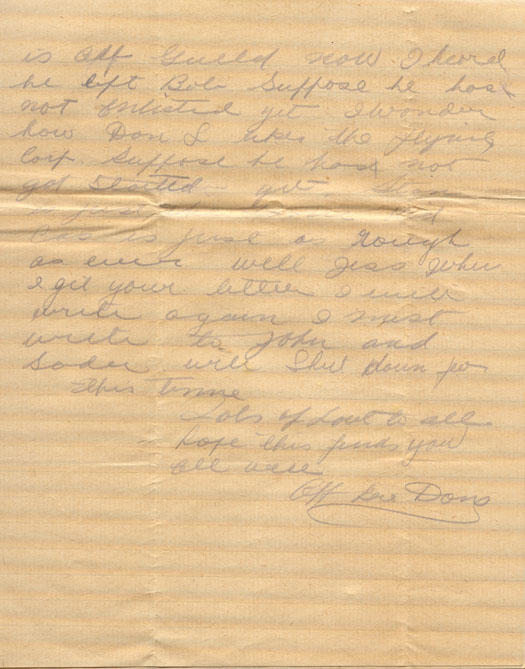 is Alf Gueld now. I heard
he left Bob Suppose he has
not enlisted yet I wonder
how Don S likes the flying
Corp. Suppose he has not
got started yet.
is just
is just as rough
as ever well Jess when
I git your letter I will
write again I must
write to John and
Sadie will Shut down for
this time
Lots of Love to all.
hope this finds you
all well
Aff Bro Dono